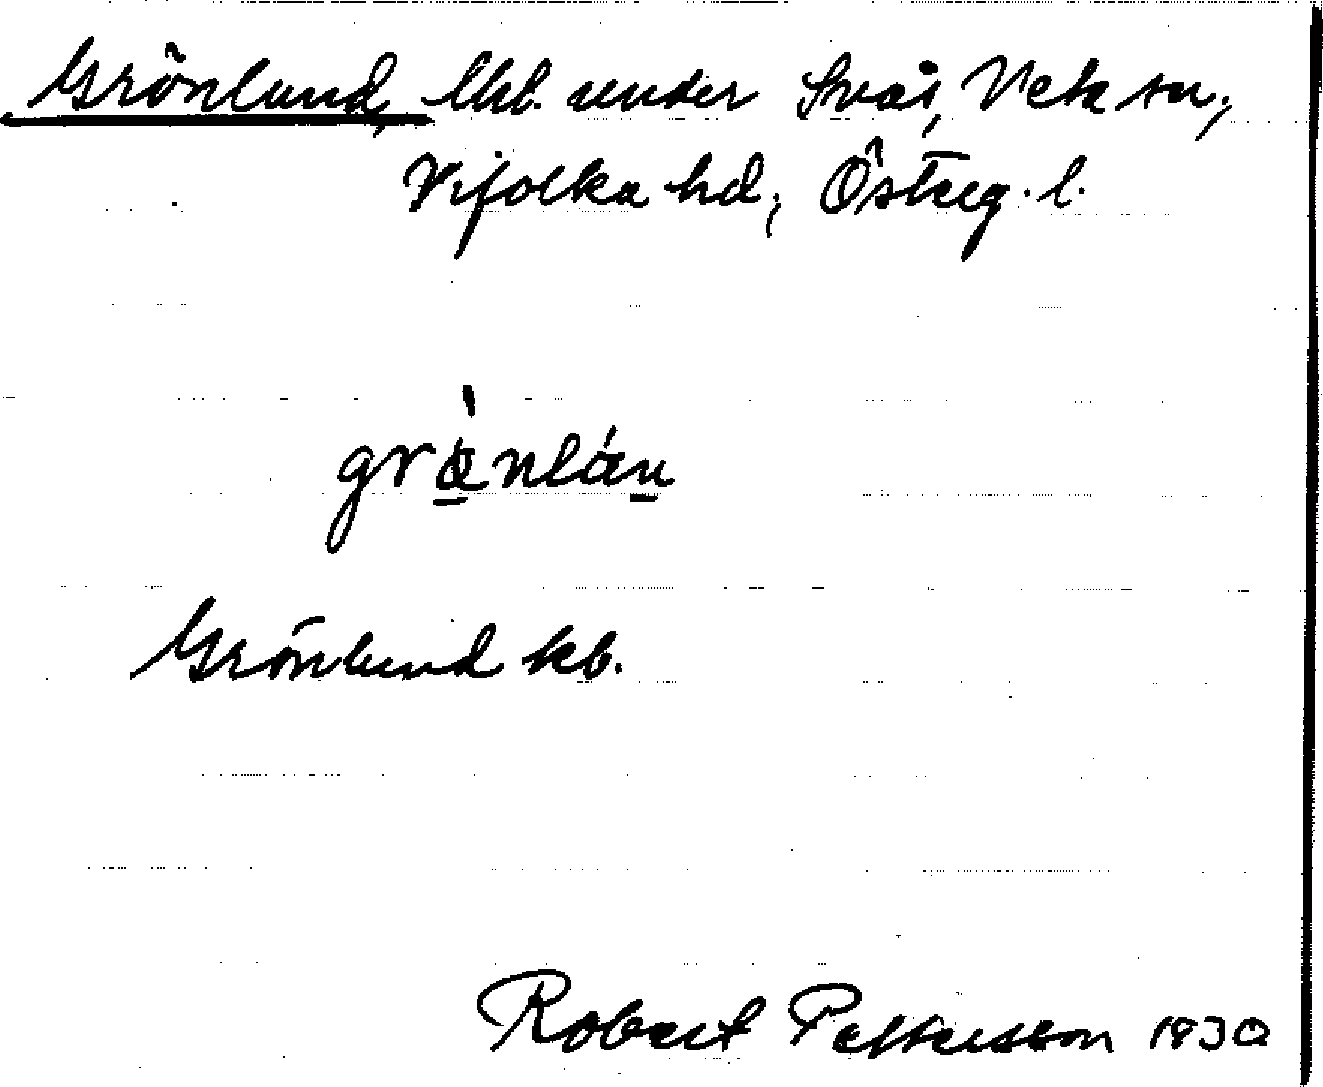 Grönlund, lhb. under Sväs, Veta sn,
Vifolka hd, Österg. l.
grö̀nlón
Grönlund kb.
Robert Pettersson 1930